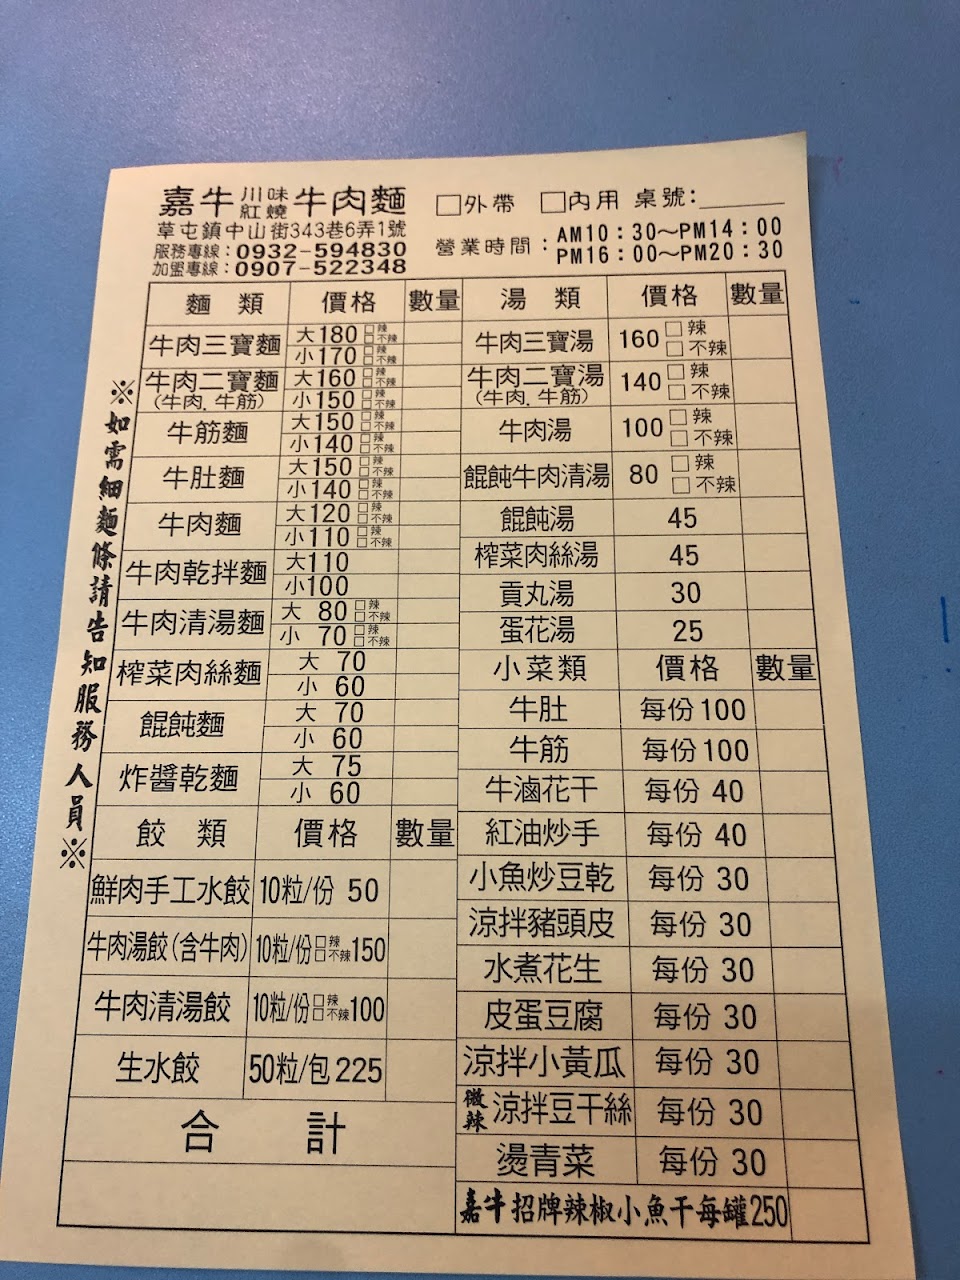 嘉牛 川味 紅燒 牛肉麵
□外帶 □內用 桌號:
草屯鎮中山街343巷6弄1號
服務專線：0932-594830
加盟專線：0907-522348
營業時間：AM10：30～PM14：00
PM16：00～PM20：30
※如需細麵條請告知服務人員※
麵類 價格 數量
牛肉三寶麵 大180 □辣 □不辣
小170 □辣 □不辣
牛肉二寶麵 大160 □辣 □不辣
(牛肉.牛筋) 小150 □辣 □不辣
牛筋麵 大150 □辣 □不辣
小140 □辣 □不辣
牛肚麵 大150 □辣 □不辣
小140 □辣 □不辣
牛肉麵 大120 □辣 □不辣
小110 □辣 □不辣
牛肉乾拌麵 大110
小100
牛肉清湯麵 大 80 □辣 □不辣
小 70 □辣 □不辣
榨菜肉絲麵 大 70
小 60
餛飩麵 大 70
小 60
炸醬乾麵 大 75
小 60
餃類 價格 數量
鮮肉手工水餃 10粒/份 50
牛肉湯餃(含牛肉) 10粒/份 □辣 □不辣 150
牛肉清湯餃 10粒/份 □辣 □不辣 100
生水餃 50粒/包 225
合計
湯類 價格 數量
牛肉三寶湯 160 □辣 □不辣
牛肉二寶湯 140 □辣 □不辣
(牛肉.牛筋)
牛肉湯 100 □辣 □不辣
餛飩牛肉清湯 80 □辣 □不辣
餛飩湯 45
榨菜肉絲湯 45
貢丸湯 30
蛋花湯 25
小菜類 價格 數量
牛肚 每份100
牛筋 每份100
牛滷花干 每份 40
紅油炒手 每份 40
小魚炒豆乾 每份 30
涼拌豬頭皮 每份 30
水煮花生 每份 30
皮蛋豆腐 每份 30
涼拌小黃瓜 每份 30
微辣 涼拌豆干絲 每份 30
燙青菜 每份 30
嘉牛招牌辣椒小魚干每罐250